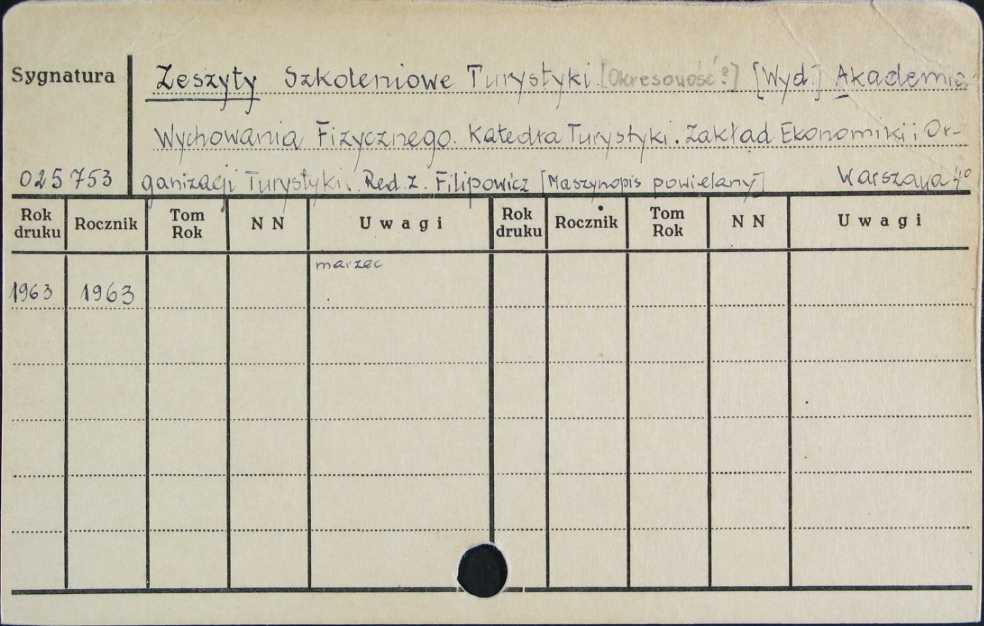 Sygnatura
Zeszyty Szkoleniowe Turystyki. [Okresowość?] [Wyd.] Akademia
Wychowania Fizycznego. Katedra Turystyki. Zakład Ekonomiki i Or-
025753 ganizacji Turystyki. Red. Z. Filipowicz [Maszynopis powielany] Warszawa 4°
Rok druku Rocznik Tom Rok N N Uwagi Rok druku Rocznik Tom Rok N N Uwagi
marzec
1963 1963